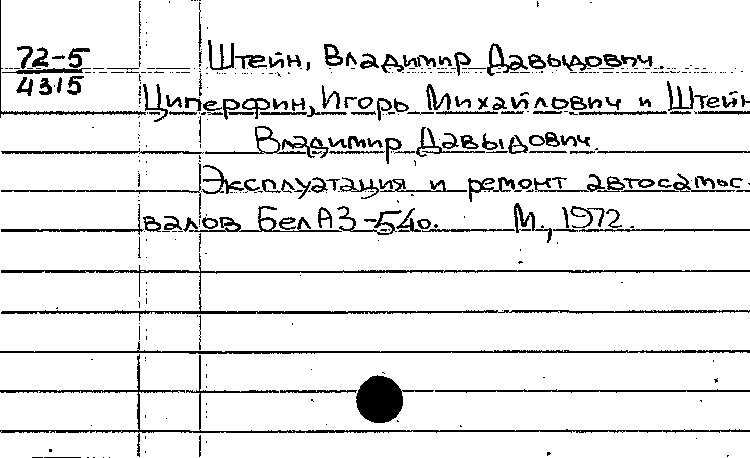 72-5
4315
Штейн, Владимир Давыдович.
Циперфин, Игорь Михайлович и Штейн
Владимир Давыдович.
Эксплуатация и ремонт автосамос-
валов БелАЗ-540. М., 1972.